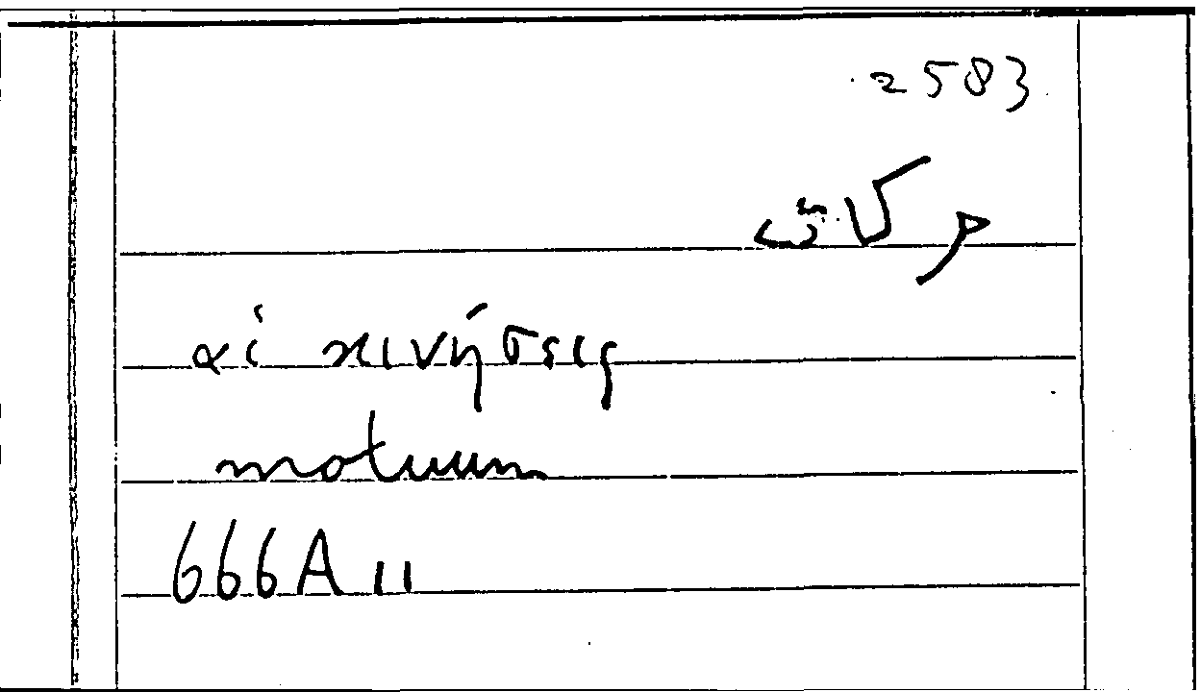 2583
حركات
αἱ κινήσεις
motuum
666A11